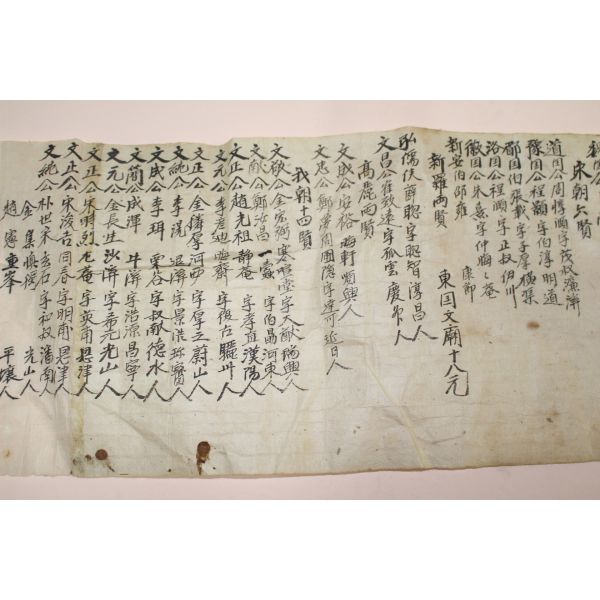 宋朝六賢
道国公周惇頤字茂叔濂溪
豫国公程顥字伯淳明道
郿国伯張載字子厚橫渠
洛国公程頤字正叔伊川
徽国公朱熹字仲晦晦庵
新安伯邵雍 康節
東国文廟十八元
新羅兩賢
弘儒侯薛聰字聰智淳昌人
文昌公崔致遠字孤雲慶州人
高麗兩賢
文成公安裕晦軒順興人
文忠公鄭夢周圃隱字達可延日人
我朝十四賢
文敬公金宏弼寒暄堂字大猷瑞興人
文獻公鄭汝昌一蠹字伯勗河東人
文正公趙光祖靜庵字孝直漢陽人
文元公李彦迪晦齋字復古驪州人
文純公李滉退溪字景浩珍寶人
文正公金麟厚河西字厚之蔚山人
文成公李珥栗谷字叔獻德水人
文簡公成渾牛溪字浩源昌寧人
文元公金長生沙溪字希元光山人
文正公宋時烈尤庵字英甫恩津人
文正公宋浚吉同春字明甫恩津人
文純公朴世采玄石字和叔潘南人
金集愼獨 光山人
趙憲重峯 平壤人